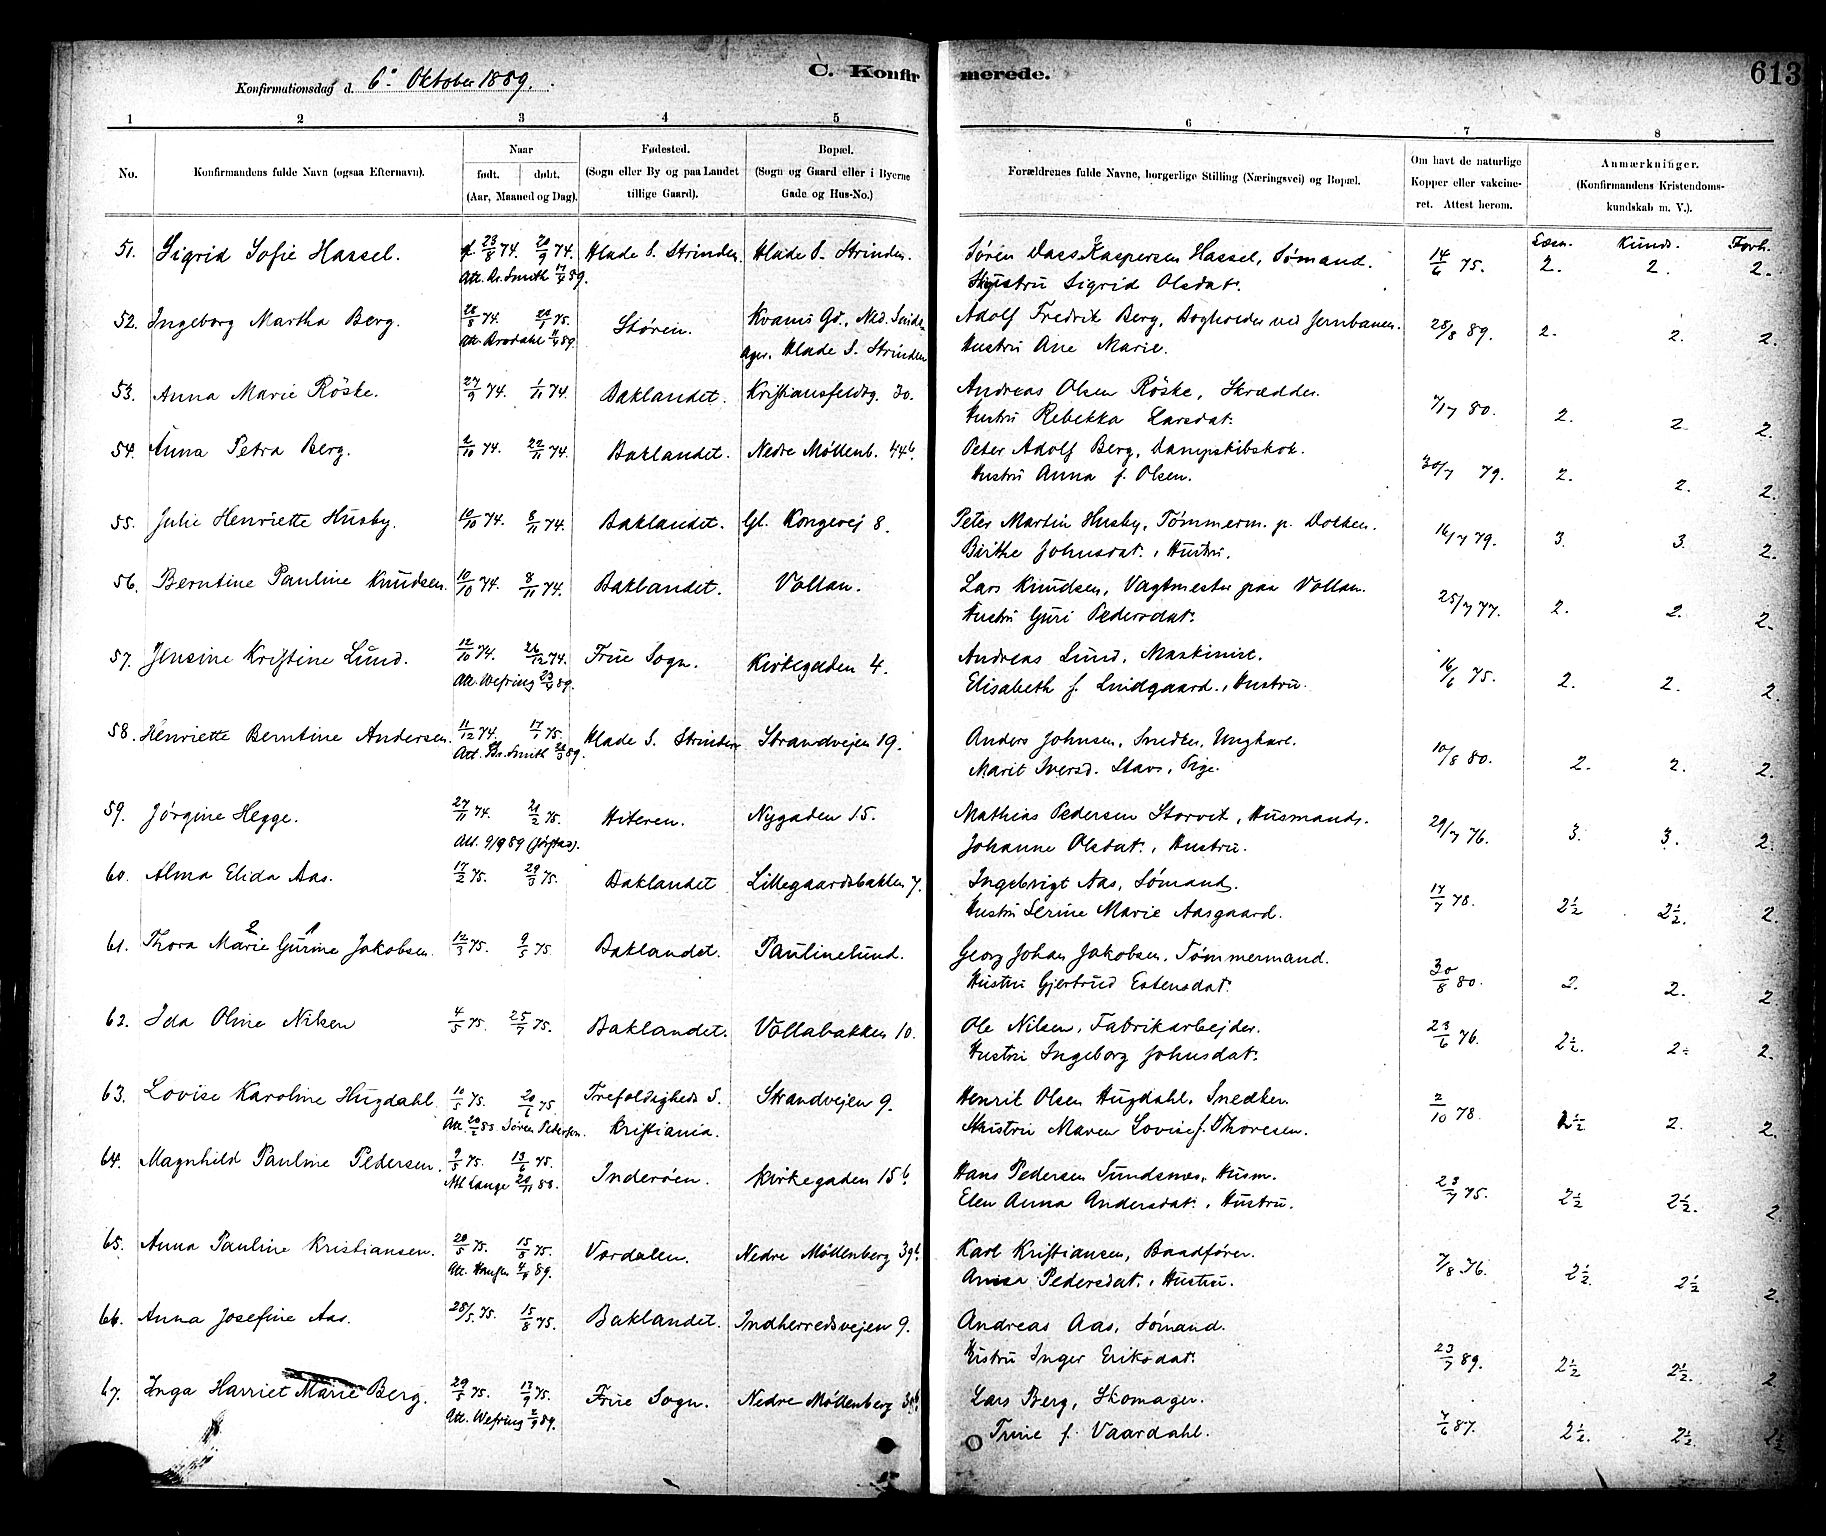 C. Konfirmerede. 613
Konfirmationsdag d. 6te Oktober 1889.
1 2 3 4 5 6 7 8
No. Konfirmandens fulde Navn (ogsaa Efternavn). Naar født. døbt. (Aar, Maaned og Dag). Fødested. (Sogn eller By og paa Landet tillige Gaard). Bopæl. (Sogn og Gaard eller i Byerne Gade og Hus-No.) Forældrenes fulde Navne, borgerlige Stilling (Næringsvei) og Bopæl. Om havt de naturlige Kopper eller vakcineret. Attest herom. Anmærkninger. (Konfirmandens Kristendomskundskab m. V.).
Læsn. Kunds. Forh.
51. Sigrid Sofie Hassel. 23/8 74. 20/9 74. Hlade S. Strinden. Hlade S. Strinden. Søren Dass Kaspersen Hassel, Sømand. 14/6 75. 2. 2. 2.
Att. Dr. Smith 17/4 89. Hustru Sigrid Olsdat.
52. Ingeborg Martha Berg. 28/8 74. 20/1 75. Støren. Kvams Gd., Ned. Adolf Fredrik Berg, Bogholder ved Jernbanen. 28/8 89. 2. 2. 2.
Hlade S. Strinden Hustru Ane Marie.
53. Anna Marie Röske. 27/9 74. 1/11 74. Baklandet. Kristiansfeldtg. 30. Andreas Olsen Röske, Skrædder. 80. 2. 2. 2.
Hustru Rebekka Larsdat.
54. Anna Petra Berg. 2/10 74. 22/11 74. Baklandet. Nedre Møllenb. 44b. Peter Adolf Berg, Dampskibskok. 30/7 79. 2. 2. 2.
Hustru Anna f. Olsen.
55. Julie Henriette Husby. 10/10 74. 8/11 74. Baklandet. Gl. Kongevej 8. Peter Martin Husby, Tømmerm. p. Dokken. 16/7 79. 3. 3. 2.
Berithe Johnsdat., Hustru.
56. Berntine Pauline Knudsen. 10/10 74. 8/11 74. Baklandet. Vollan. Lars Knudsen, Vagtmester paa Vollan. 25/7 77. 2. 2. 2.
Hustru Guri Pedersdat.
57. Jensine Kristine Lund. 12/10 74. 26/12 74. Frue Sogn. Kirkegaden 4. Andreas Lund, Maskinist. 16/6 75. 2. 2. 2.
Att. Wefring 23/4 89. Elisabeth f. Lindgaard, Hustru.
58. Henriette Berntine Andersen. 11/12 74. 17/1 75. Hlade S. Strinden Strandvejen 19. Anders Johnsen, Snedker, Ungkarl. 10/8 80. 2. 2. 2.
Att. Dr. Smith 89. Marit Iversd. Stavs, Pige.
59. Jørgine Hegge. 27/11 74. 21/2 75. Hiteren. Nygaden 15. Mathias Pedersen Storvik, Husmands. 29/7 76. 3. 3. 2.
Att. 9/9 89 Johanne Olsdat., Hustru.
60. Alma Elida Aas. 17/2 75. 29/3 75. Baklandet Lillegaardsbakken 7. Ingebrigt Aas, Sømand. 17/7 78. 2½ 2½. 2.
Hustru Serine Marie Aasgaard.
61. Thora Marie Gurine Jakobsen. 12/3 75. 9/5 75. Baklandet. Paulinelund. Georg Johan Jakobsen, Tømmermand. 30/8 80. 2. 2. 2
Hustru Gjertrud Estensdat.
62. Ida Oline Nilsen 4/5 75. 25/7 75. Baklandet. Vollabakken 10. Ole Nilsen, Fabrikarbejder. 23/6 76. 2½. 2 2.
Hustru Ingeborg Johnsdat.
63. Lovise Karoline Hugdahl 10/5 75. 20/6 75 Trefoldigheds S. Strandvejen 9. Henrik Olsen Hugdahl, Snedker. 2/10 78. 2½ 2. 2.
Att. Søren Pedersen. Kristiania. Hustru Maren Lovise f. Thoresen.
64. Magnhild Pauline Pedersen. 9/5 75. 13/6 75. Inderøen. Kirkegaden 15b. Hans Pedersen Sundsnes, Husm. 23/7 75. 2½ 2½. 2.
Att. Lange 20/11 88. Elen Anna Andersdat., Hustru.
65. Anna Pauline Kristiansen. 20/5 75. 15/8 75. Værdalen. Nedre Møllenberg 39b. Karl Kristiansen, Baadfører. 7/8 76. 2½. 2½ 2.
89. Anna Pedersdat., Hustru.
66. Anna Josefine Aas. 28/5 75. 15/8 75. Baklandet. Indherredsvejen 9. Andreas Aas, Sømand. 23/7 89. 2½ 2½. 2
Hustru Inger Eriksdat.
67. Inga Harriet Marie Berg. 29/5 75. 12/9 75. Frue Sogn. Nedre Møllenberg Lars Berg, Skomager. 7/6 87. 2½. 2½. 2½
Att. Wefring 2/9 89. Trine f. Vaardahl.